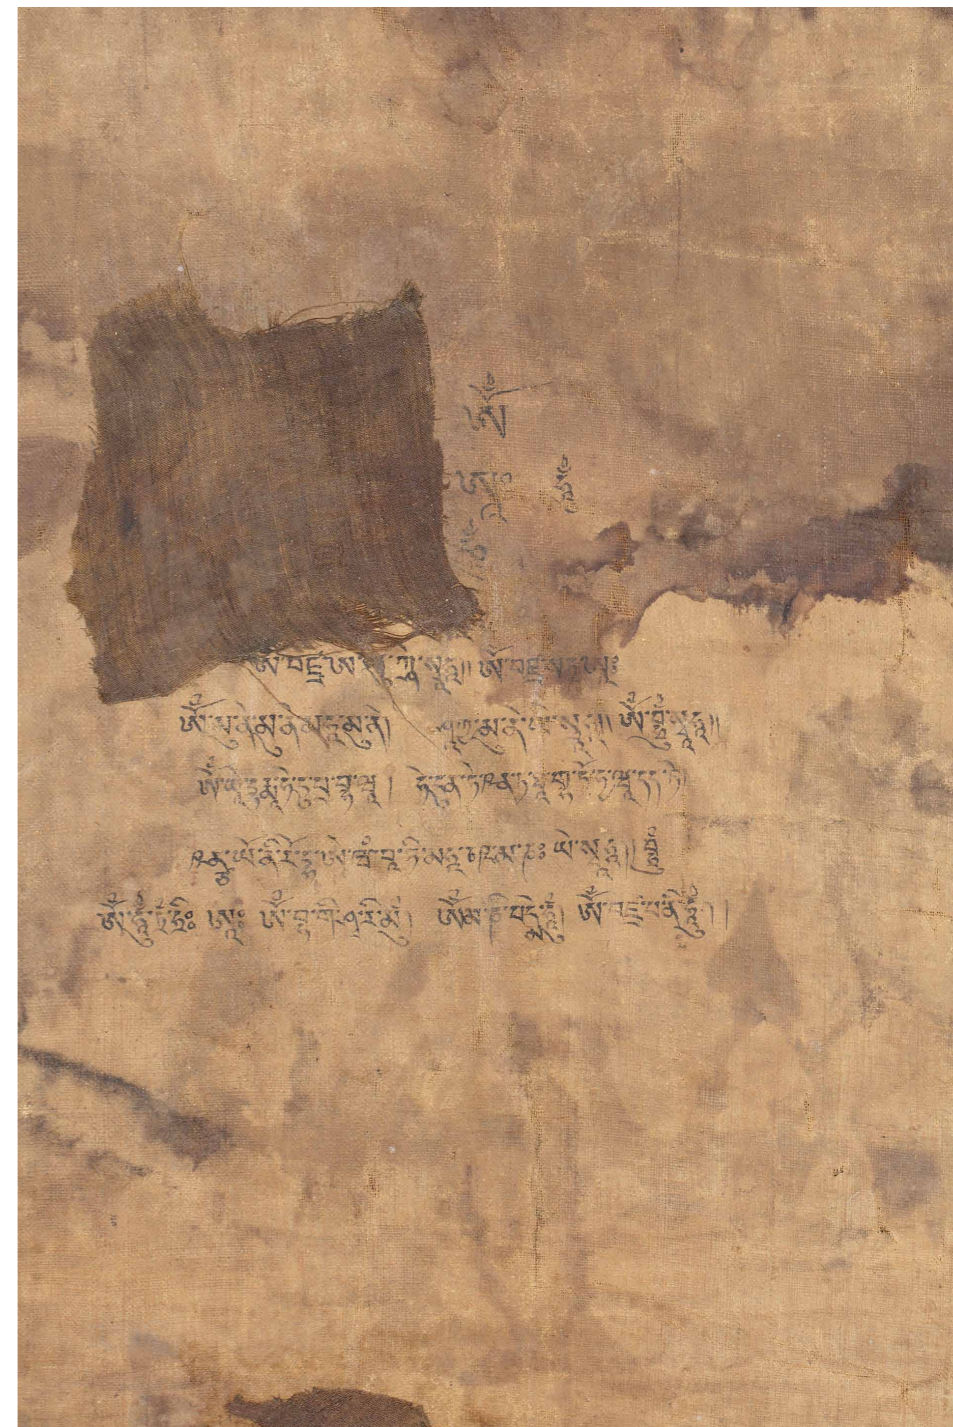 ཨོཾ
ཨཱཿ ཧཱུྃ
ཧཱུྃ
ཨོཾ་བཛྲ་ཨ་ སྭཱཧཱ།། ཨོཾ་བཛྲ་སཏྭ་ཨཱཿ
ཨོཾ་མུ་ནེ་མུ་ནེ་མཧཱ་མུ་ནེ། ཤཱཀྱ་མུ་ནེ་ཡེ་སྭཱཧཱ།། ཨོཾ་བྷྲཱུྃ་སྭཱཧཱ།།
ཨོཾ་ཡེ་དྷརྨཱ་ཧེ་ཏུ་པྲ་བྷ་ཝཱ། ཧེ་ཏུན་ཏེ་ཥན་ཏ་ཐཱ་ག་ཏོ་ཧྱ་ཝཱ་དད་ཏེ
ཥཱན་ཡོ་ནི་རོ་དྷ་ཨེ་ཝཾ་བཱ་ཏི་མཧཱ་ཤྲ་མ་ཎཿ ཡེ་སྭཱཧཱ།། བྷྲཱུྃ
ཨོཾ་ཧཱུྃ་ཏྲཾ་ཧྲཱིཿ ཨཱཿ ཨོཾ་བྷ་གི་ཤྭ་རི་མུྃ། ཨོཾ་མ་ཎི་པདྨེ་ཧཱུྃ། ཨོཾ་བཛྲ་པ་ནི་ཧཱུྃ།།